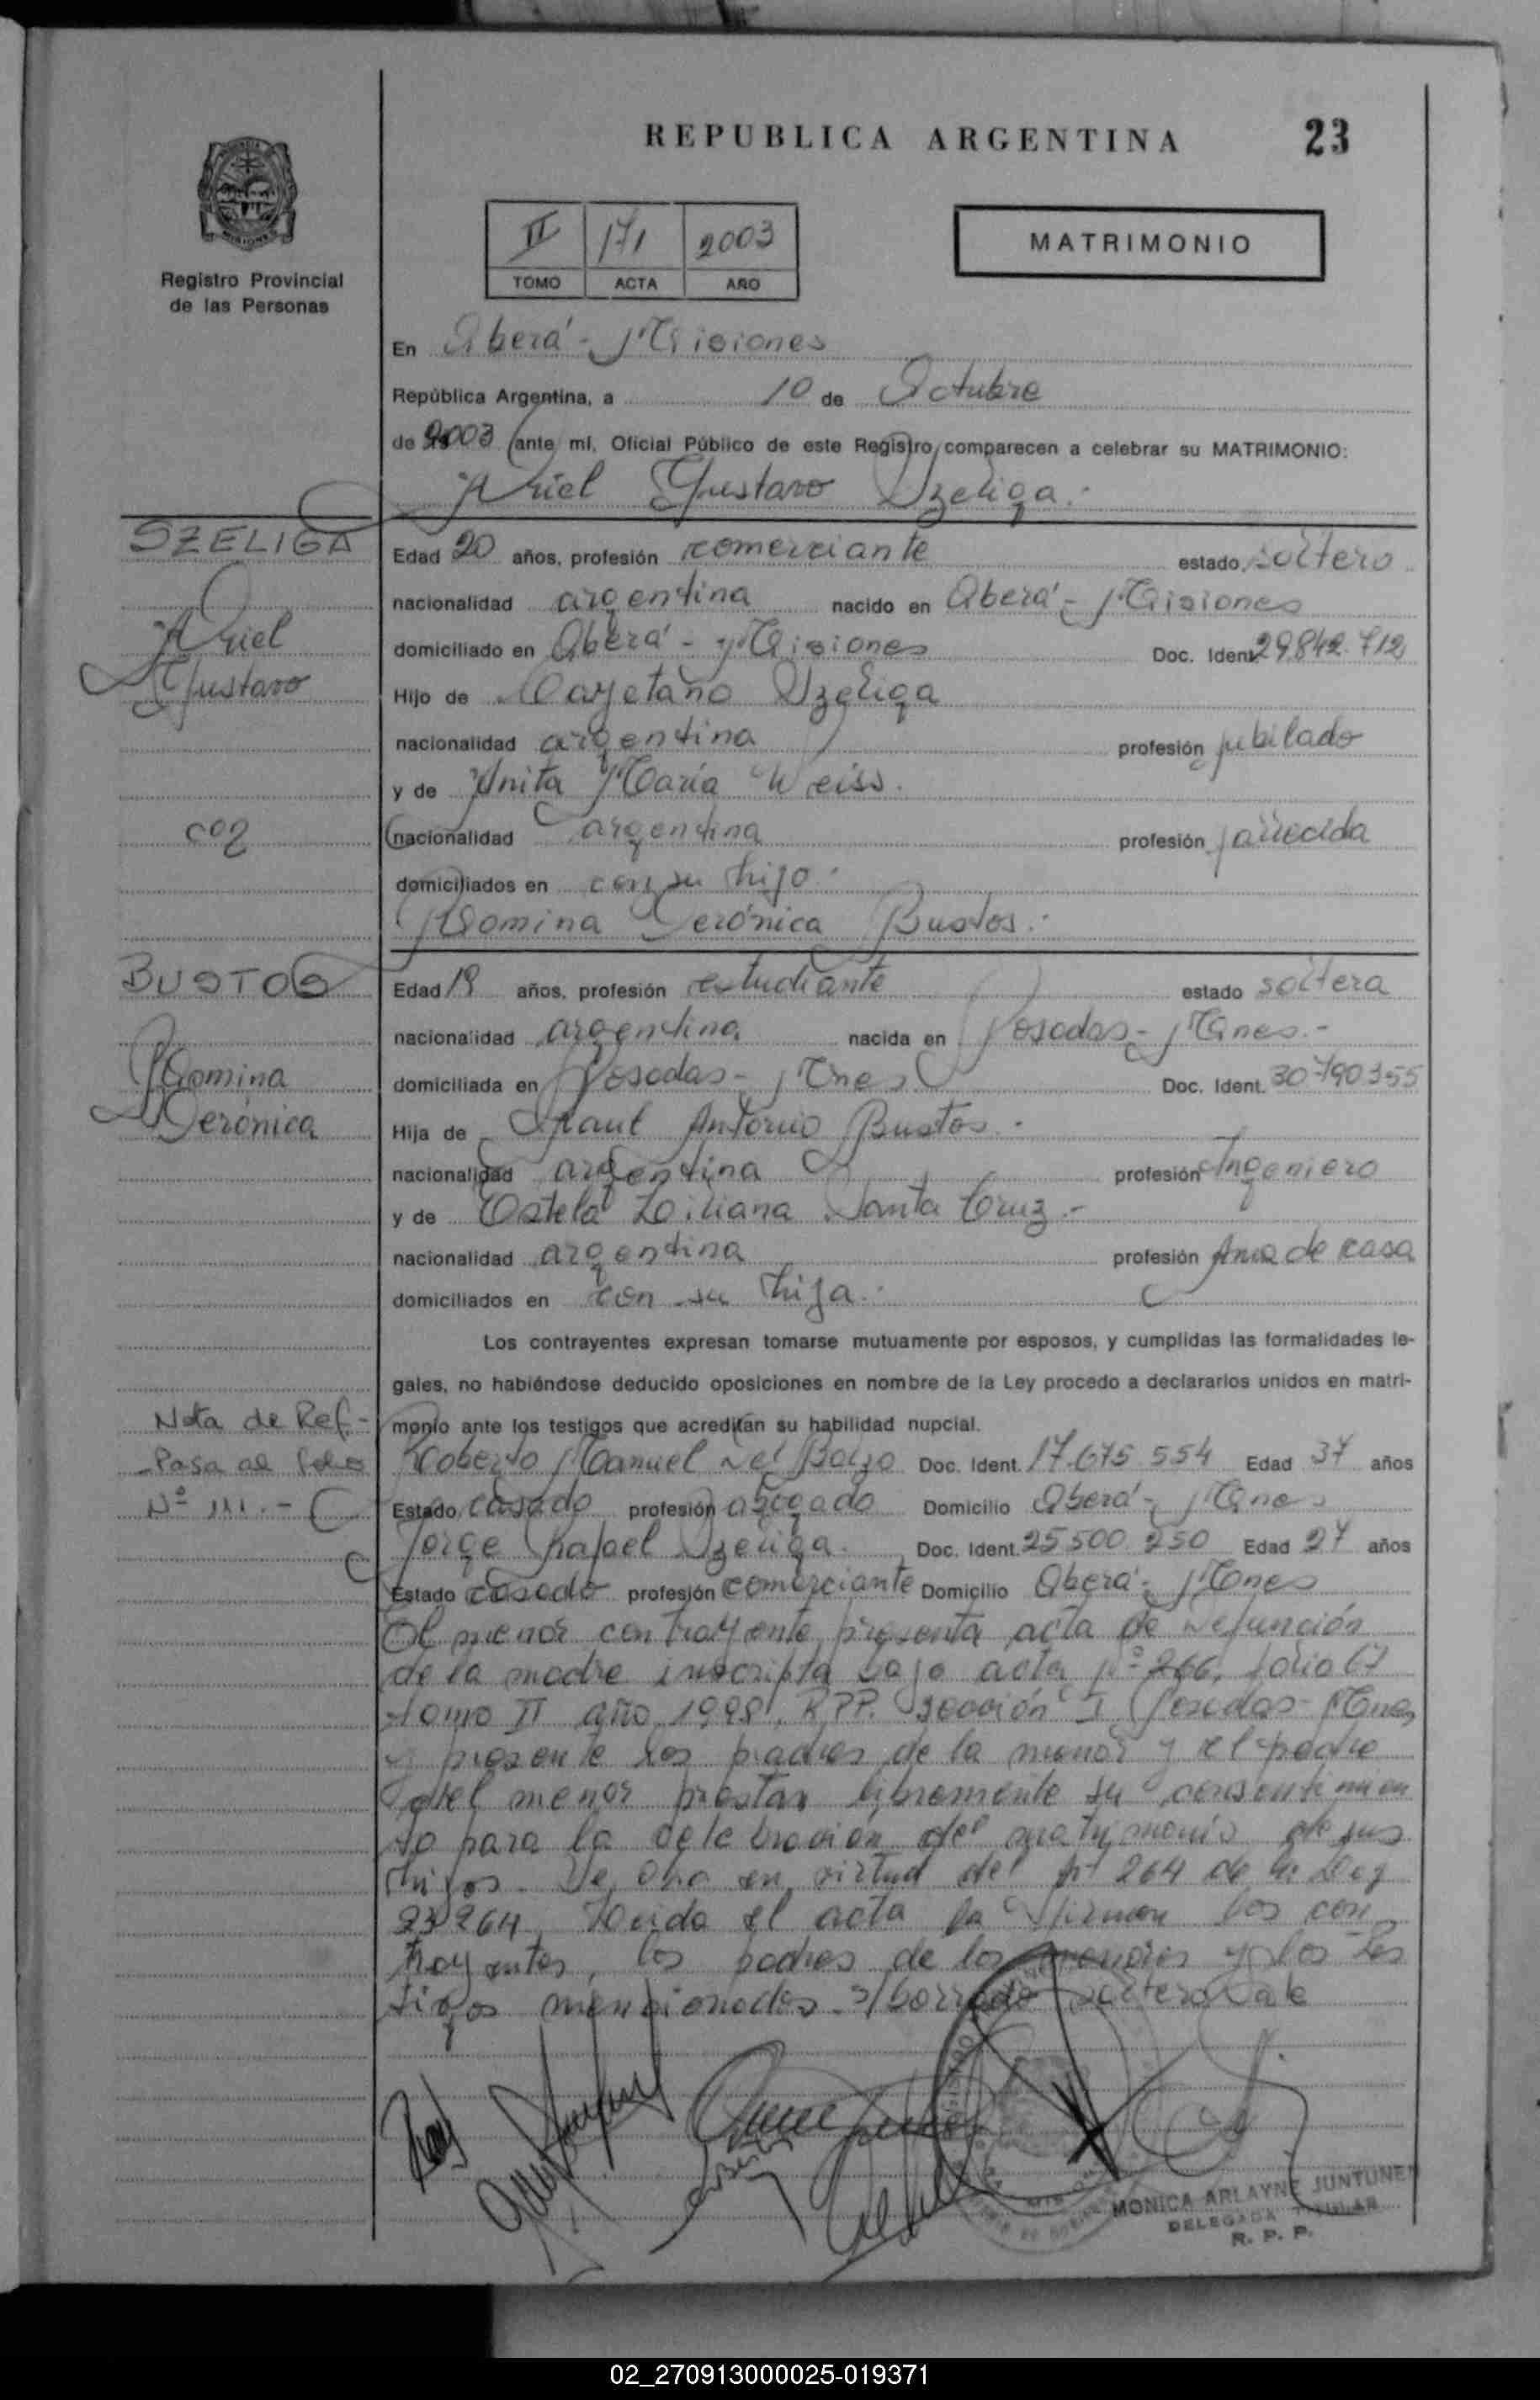 REPUBLICA ARGENTINA
23
MISIONES
Registro Provincial
de las Personas
II 171 2003
TOMO ACTA AÑO
MATRIMONIO
En Oberá - Misiones
República Argentina, a 10 de Octubre
de 2003 ante mí, Oficial Público de este Registro, comparecen a celebrar su MATRIMONIO:
Ariel Gustavo Szeliga.-
SZELIGA
Ariel
Gustavo
con
Edad 20 años, profesión comerciante estado soltero
nacionalidad argentina nacido en Oberá - Misiones
domiciliado en Oberá - Misiones Doc. Ident. 29.842.712
Hijo de Cayetano Szeliga
nacionalidad argentina profesión jubilado
y de Anita María Weiss.
nacionalidad argentina profesión fallecida
domiciliados en con su hijo.-
Romina Verónica Bustos.-
BUSTOS
Romina
Verónica
Edad 19 años, profesión estudiante estado soltera
nacionalidad argentina nacida en Posadas - Mnes.-
domiciliada en Posadas - Mnes Doc. Ident. 30790355
Hija de Raul Antonio Bustos.-
nacionalidad argentina profesión Ingeniero
y de Estela Liliana Santa Cruz.-
nacionalidad argentina profesión Ama de casa
domiciliados en con su hija.-
Los contrayentes expresan tomarse mutuamente por esposos, y cumplidas las formalidades le-
gales, no habiéndose deducido oposiciones en nombre de la Ley procedo a declararlos unidos en matri-
monio ante los testigos que acreditan su habilidad nupcial.
Nota de Ref.-
Pasa al folio
Nº 111.-
Roberto Manuel Del Doc. Ident. 17.675.554 Edad 37 años
Estado casado profesión abogado Domicilio Oberá - Mnes
Jorge Rafael Szeliga. Doc. Ident. 25.500.250 Edad 27 años
Estado casado profesión comerciante Domicilio Oberá - Mnes
El menor contrayente presenta acta de defunción
de la madre inscripta bajo acta Nº 266, folio 67
tomo II año 1998, R.P.P. Sección I Posadas - Mnes
y presente los padres de la menor y el padre
del menor prestan libremente su consentimien
to para la celebración del matrimonio de sus
hijos. en virtud del Art 264 de la Ley
23264. Leída el acta la firman los con
trayentes, los padres de los menores y los tes
tigos mencionados. S/borrado soltero Vale
MONICA ARLAYNE JUNTUNEN
DELEGADA TITULAR
R. P. P.
02_270913000025-019371